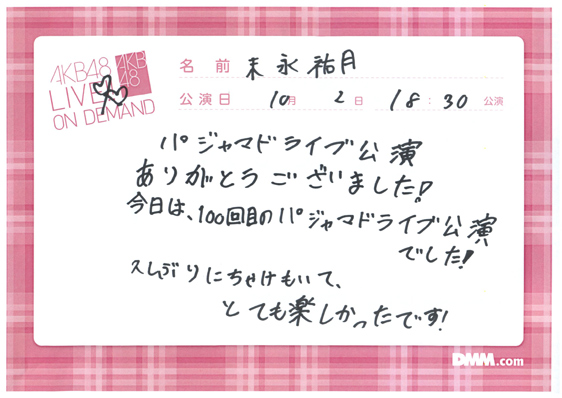 AKB48
LIVE!!
ON DEMAND
AKB
48
名前 末永祐月
公演日 10月 2日 18:30 公演
パジャマドライブ公演
ありがとうございました!
今日は、100回目のパジャマドライブ公演
でした!
久しぶりにちゃけもいて、
とても楽しかったです!
DMM.com